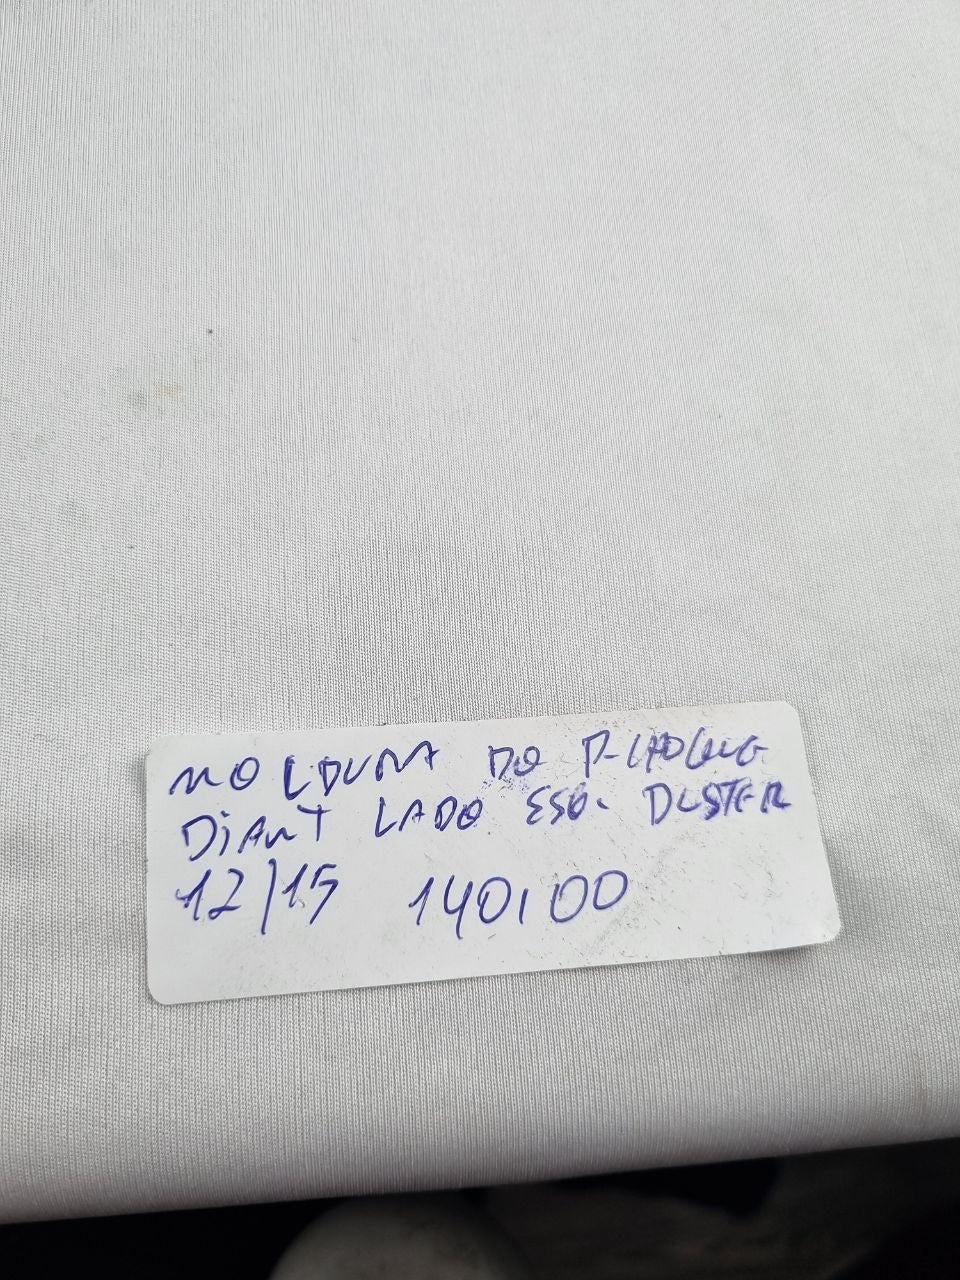 MOLDURA DO P-CHOQUE
DiANT LADO ESQ. DUSTER
12/15 140,00